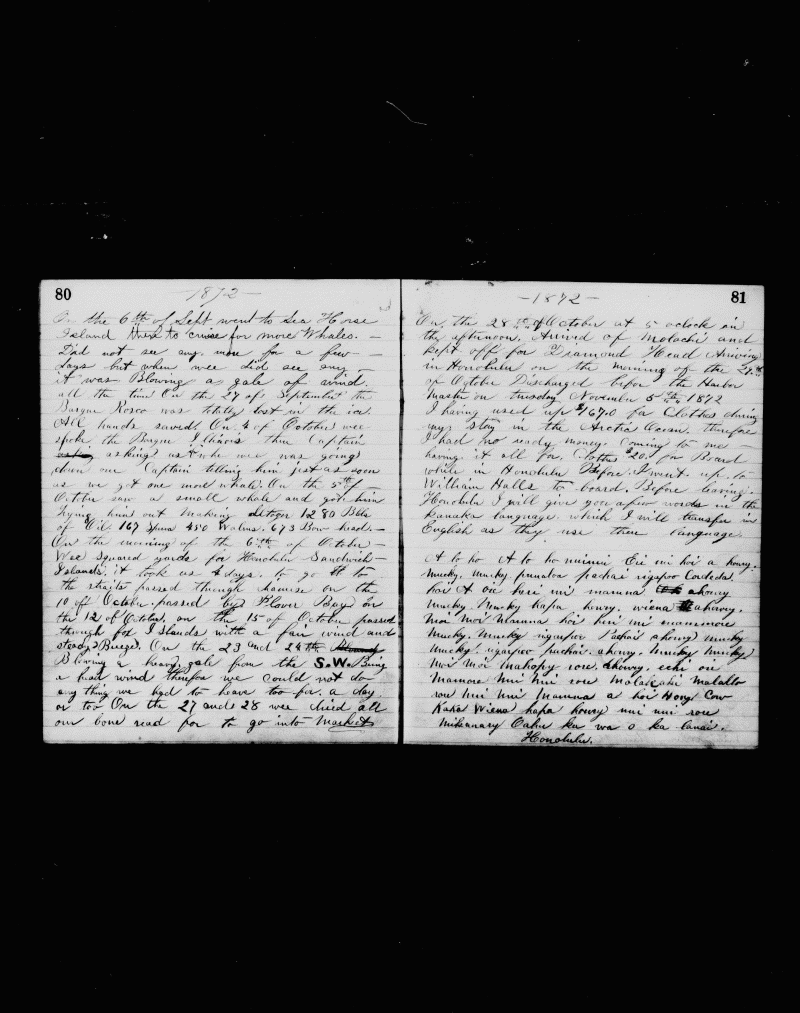 80
-1872-
On the 6th of Sept went to Sea Horse
Island there to cruise for more Whales. -
Did not see any more for a few -
days but when wee did see any -
it was Blowing a gale of wind.
all the time On the 27 of September the
Barque Rosco was totally lost in the ice.
All hands saved. On 4 of October wee
spoke the Barque Illinois the Captain
asking us where wee was going
then our Captain telling him just as soon
as we got one more whale. On the 5th of
October saw a small whale and got him
Trying him out making 1280 Bbls
of Oil. 167 Sperm 450 Walrus. 673 Bow head. -
On the morning of the 6th of October -
Wee squared yards for Honolulu Sandwich -
Islands. it took us 4 days. to go to
the straits passed through on the
10 off October. passed by Plover Bay on
the 12 of October, on the 15 of October passed
through fox Islands with a fair wind and
steady Breeze. On the 23 and 24th
Blowing a heavy gale from the S.W. Being
a head wind therefore we could not do
any thing we had to heave too for a day
or too On the 27 and 28 wee dried all
our bone read for to go into Market
81
-1872-
On the 28th of October at 5 oclock in
the afternoon. Arrived of Molachi and
kept off for Diamond Head Arriving
in Honolulu on the morning of the 29th
of October Discharged before the Harbor
Master on tuesday November 5th, 1872
I having used up $167.0 for Clothes during
my stay in the Arctic Ocean. therefore
I had no ready money coming to me -
having it all for Clothes $20. for Board
while in Honolulu Before I went up to
William Halls to board. Before leaving.
Honolulu I will give you a few words in the
Kanaka language which I will transfer in
English as they use there language.
A lo ho A lo ho minni Eri mi hoi a howry.
Mucky. Mucky pachai
hoi A oni heri mi manna ahoney
Mucky Mucky hapa howry. wiena ahowry.
Moi Moi Manna hoi heri mi
Mucky. Mucky Pachai ahowry mucky
Mucky. pachai. ahowry. Mucky Mucky
Moi Moi Mahopy rore. ahowry. oni
Mamore Mui Mui rou Molakahi Malallo
rou Mui Mui Mamma a hoi Hong Cow
Kaka Wiena hapa howry mui mui rou
Mikanary Oahu ka wa o ka lanai.
Honolulu.